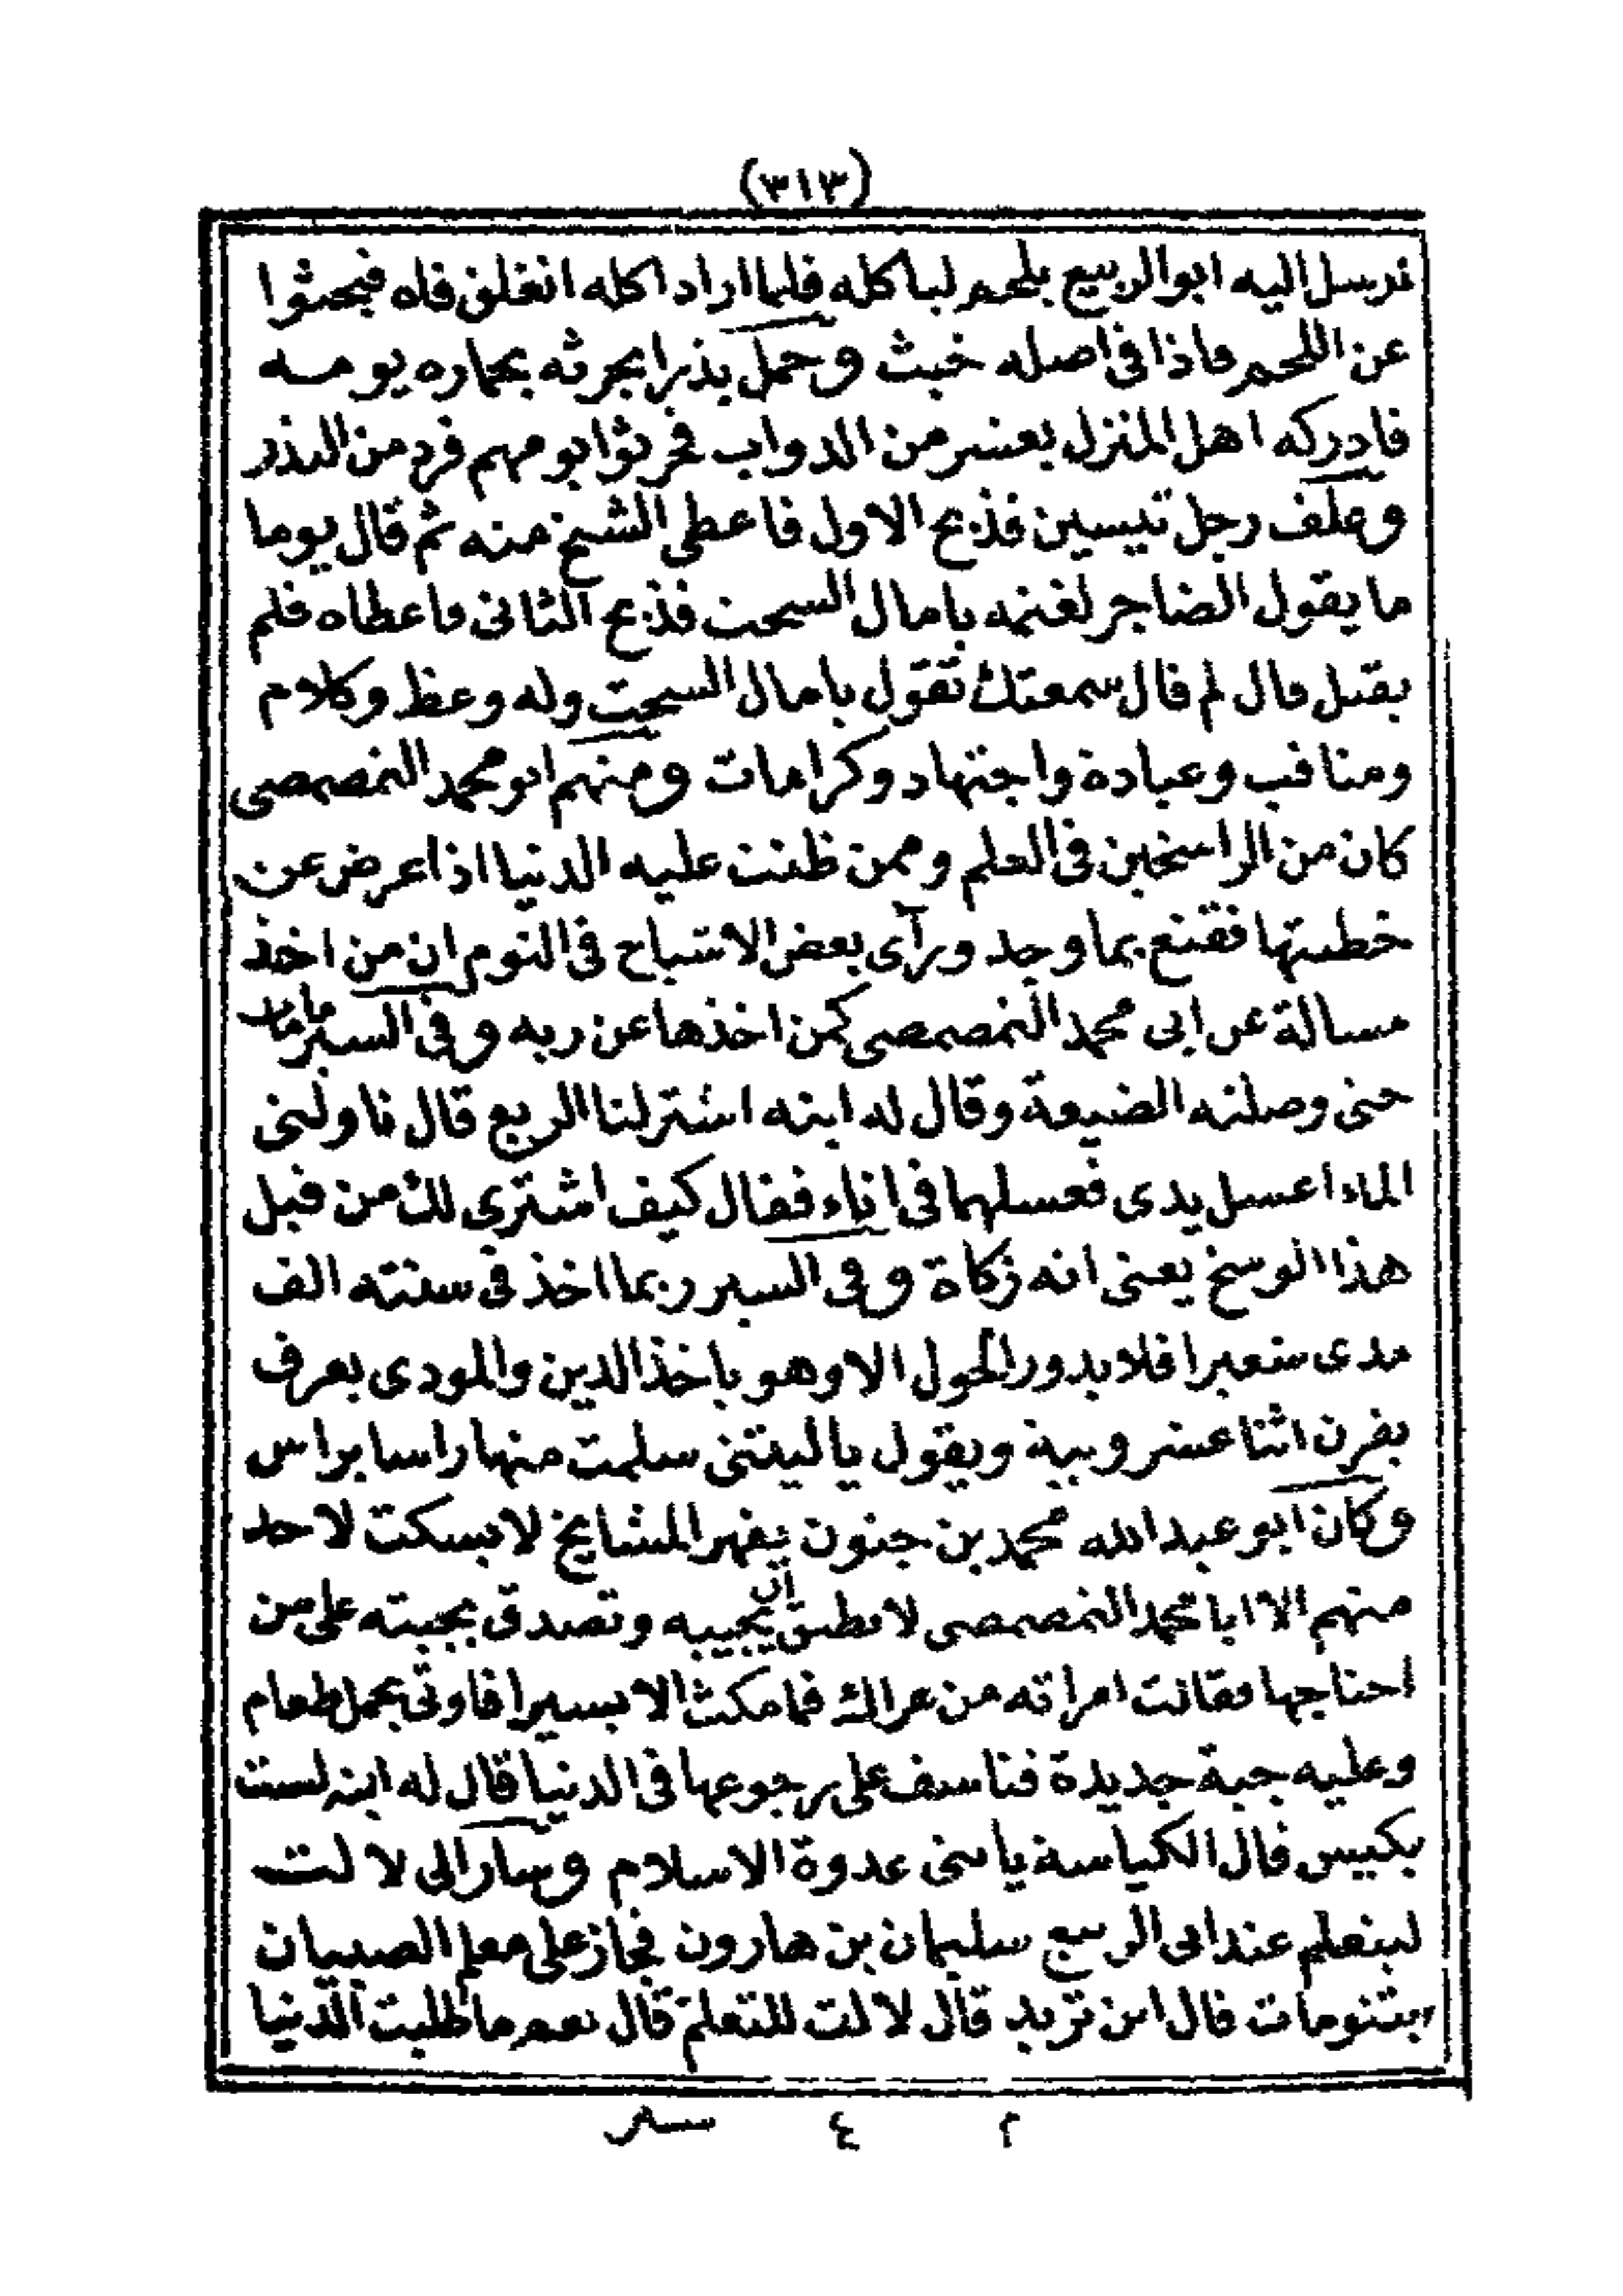 (٣١٣)
فرسل اليه ابو الربيع بلحم لياكله فلما اراد اكله انغلق فاه فبحثوا
عن اللحم فاذا فى اصله خبث وحمل بذرا يحرثه بحماره يومــه
فادركه اهل المنزل بعشر من الدواب فحرثوا يومهم فرد من البذر
وعلف رجل تيسين فذبح الاول فاعطى الشيخ منه ثم قال يوما
ما يقول الضاجر لغنمه يا مال السحت فذبح الثانى فاعطاه فلم
يقبل قال لم قال سمعتك تقول يا مال السحت وله وعظ وكلام
ومناقب وعبادة واجتهاد وكرامات ومنهم ابو محمد النمصمصى
كان من الراسخين فى العلم وممن ظننت عليه الدنيا اذا عرض عن
خطبتها فقنع بما وجد ورآى بعض الاشياخ فى النوم ان من اخذ
مسالة عن ابى محمد النمصمصى كمن اخذها عن ربه وفى السير ما مات
حتى وصلته الضيعة وقال له ابنه اشتر لنا الربع قال ناولنى
الماء اغسل يدى فغسلهما فى اناء فقال كيف اشترى لك من قبل
هذا الوسخ يعنى انه زكاة وفى السير ربما اخذ فى سنته الف
مدى شعيرا فلا يدور الحول الا وهو ياخذ الدين والمودى يعرف
بفرن اثنا عشر ويبة ويقول يا ليتنى سلمت منها راسا براس
وكان ابو عبد الله محمد بن جنون يقهر المشايخ لا يسكت لاحد
منهم الا ابا محمد النمصمصى لا يطيق ان يجيبه وتصدق بجبته على من
احتاجها فقالت امراته من عراك فما مكث الا يسيرا فاوتى بحمل طعام
وعليه جبة جديدة فتاسف على رجوعها فى الدنيا قال له ابنه لست
بكيس قال الكياسة يا بنى عدوة الاسلام وسار الى لالت
ليتعلم عند ابى الربيع سليمان بن هارون فجاز على معلم الصبيان
بتنومات قال اين تريد قال لالت للتعلم قال نعم ما طلبت الدنيا
م ٤ سير